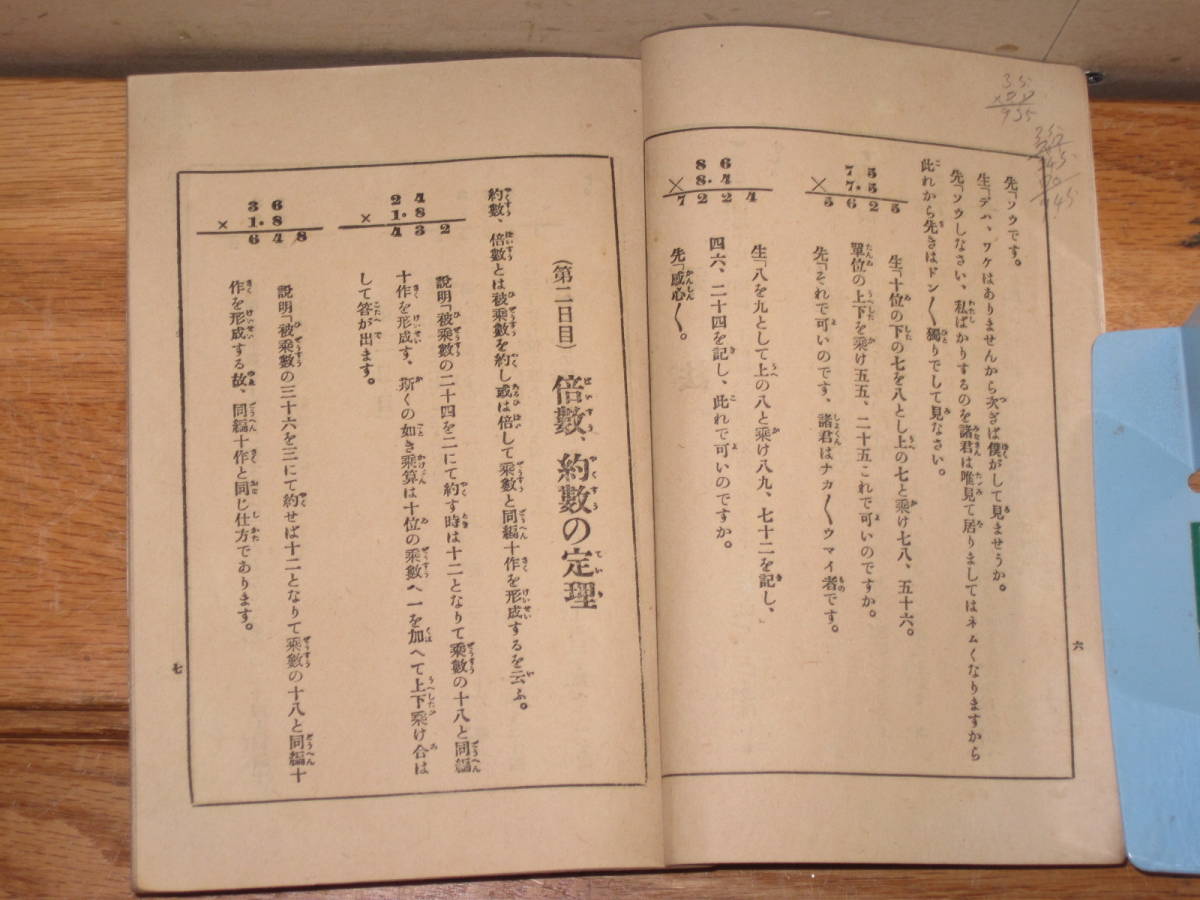 先「ソウです。
生「デハ、ワケはありませんから次ぎば僕がして見ませうか。
先「ソウしなさい、私ばかりするのを諸君は唯見て居りましてはネムくなりますから
此れから先きはドン〱獨りでして見なさい。
7 5
7. 5
×
5 6 2 5
生「十位の下の七を八とし上の七と乘け七八、五十六。
單位の上下を乘け五五、二十五これで可いのですか。
先「それで可いのです、諸君はナカ〱ウマイ者です。
8 6
8. 4
×
7 2 2 4
生「八を九として上の八と乘け八九、七十二を記し、
四六、二十四を記し、此れで可いのですか。
先「感心〱。
六
(第二日目) 倍數、約數の定理
約數、倍數とは被乘數を約し或は倍して乘數と同編十作を形成するを云ふ。
2 4
1. 8
×
4 3 2
說明「被乘數の二十四を二にて約す時は十二となりて乘數の十八と同編
十作を形成す、斯くの如き乘算は十位の乘數へ一を加へて上下乘け合は
して答が出ます。
3 6
1. 8
×
6 4 8
說明「被乘數の三十六を三にて約せば十二となりて乘數の十八と同編十
作を形成する故、同編十作と同じ仕方であります。
七